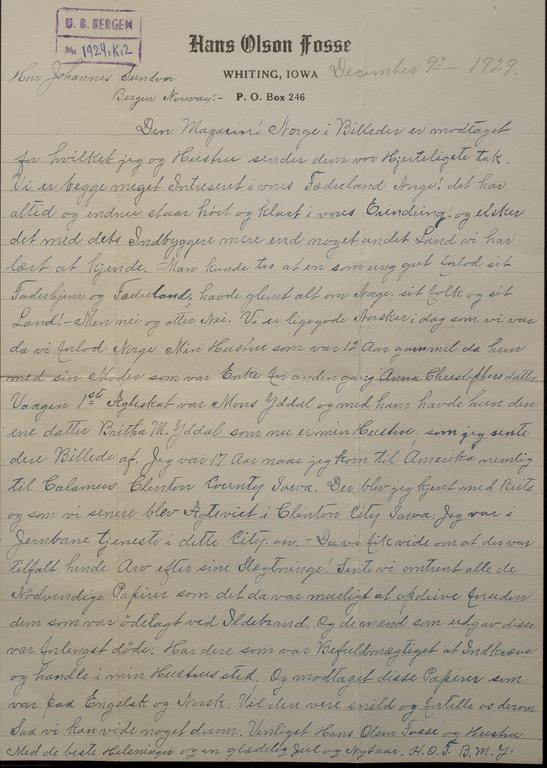 U. B. BERGEN
No 1924, K:2
Hans Olson Fosse
WHITING, IOWA December 9de – 1929.
Herr Johannes Sundvor
Bergen Norway:- P. O. Box 246
Den Magasin! Norge i Billeder er modtaget
for hvilket jeg og Hustru sender dem vor Hjerteligste tak.
Vi er begge meget Intreseret i vores Fædreland Norge! det har
altid og endnu staar høit og klart i vores Erindring! og elsker
det med dets Indbyggere mere end noget andet Land vi har
lært at kjende. Man kunde tro at en som ung gut forlod sit
Fædrehjem og Fædreland, havde glemt alt om Norge, sit folk og sit
Land!- Men nei og atter Nei. Vi er ligegode Norsker i dag som vi var
da vi forlod Norge Min Hustru som var 12 Aar gammel da hun
med sin Moder som var Enke for anden gang Anna Christophersdatter
Vaagen 1ste Ægteskab var Mons Yddal og med ham havde hun den
ene datter Britha M. Yddal som nu er min Hustru, som jeg sente
dere Billede af. Jeg var 17 Aar naar jeg kom til Amerika nemlig
til Calamus Clinton County Iowa. Der blev jeg kjent med Brita
og som vi senere blev Ægteviet i Clinton City Iowa. Jeg var i
Jernbane tjeneste i dette City. osv. – Da vi fik vide om at der var
tilfalt hende Arv efter sine Slægtninge! Sente vi omtrent alle de
Nødvendige Papirer som det da var mueligt at opdrive foruden
dem som var ødelagt ved Ildebrand. Og de mænd som udgav disse
var forlengst døde. Har dere som var Befuldmægtiget at Indkræve
og handle i min Hustrus sted. Og modtaget disse Papirer som
var paa Engelsk og Norsk. Vil dere være snild og fortelle os derom
Saa vi kan vide noget derom. Venligst Hans Olsen Fosse og Hustru
Med de beste Helsninger og en glædelig Jul og Nytaar. H. O. F. B. M. Y.